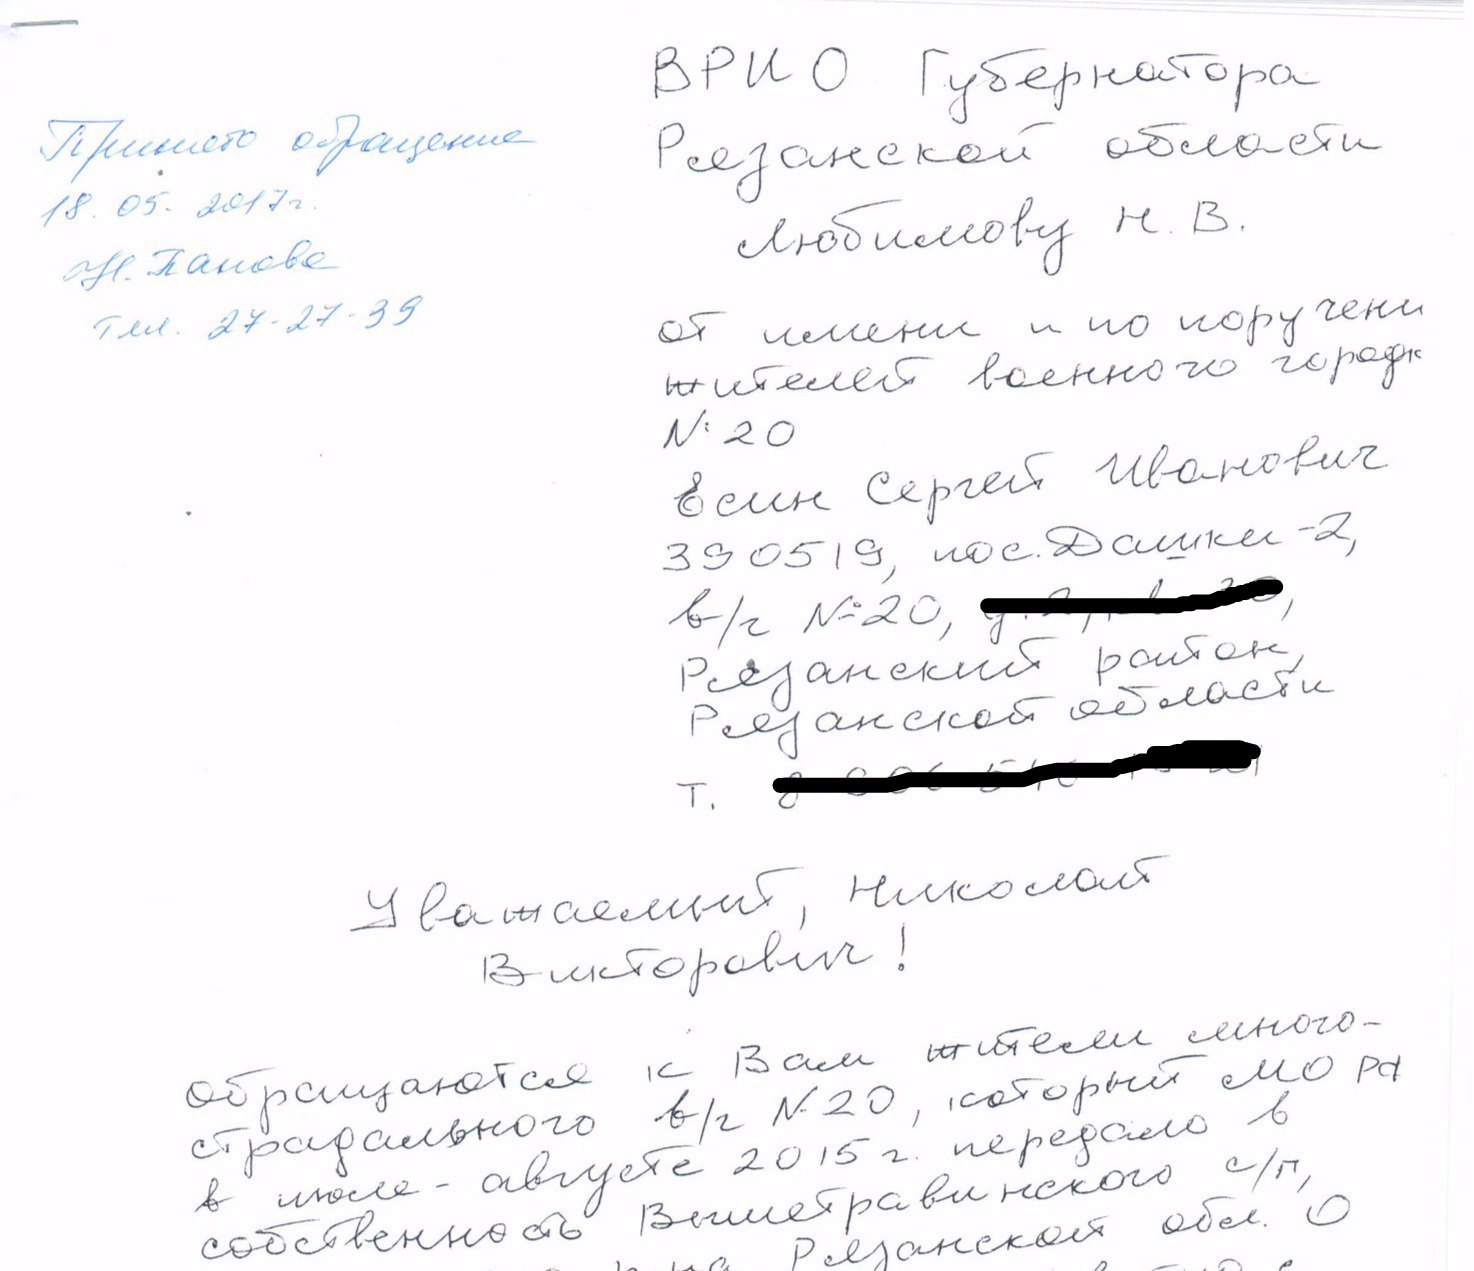 Принято обращение
18.05.2017г.
Н. Панова
тел. 27-27-39
ВРИО Губернатора
Рязанской области
Любимову Н. В.
от имени и по поручени
жителей военного городк
№ 20
Есин Сергей Иванович
390519, пос. Дашки-2,
в/г №20,
Рязанский район,
Рязанской области
т.
Уважаемый, Николай
Викторович!
обращаются к Вам жители много-
страдального в/г №20, который МО РФ
в июле - августе 2015 г. передало в
собственность Вышетравинского с/п,
р-на Рязанской обл. О